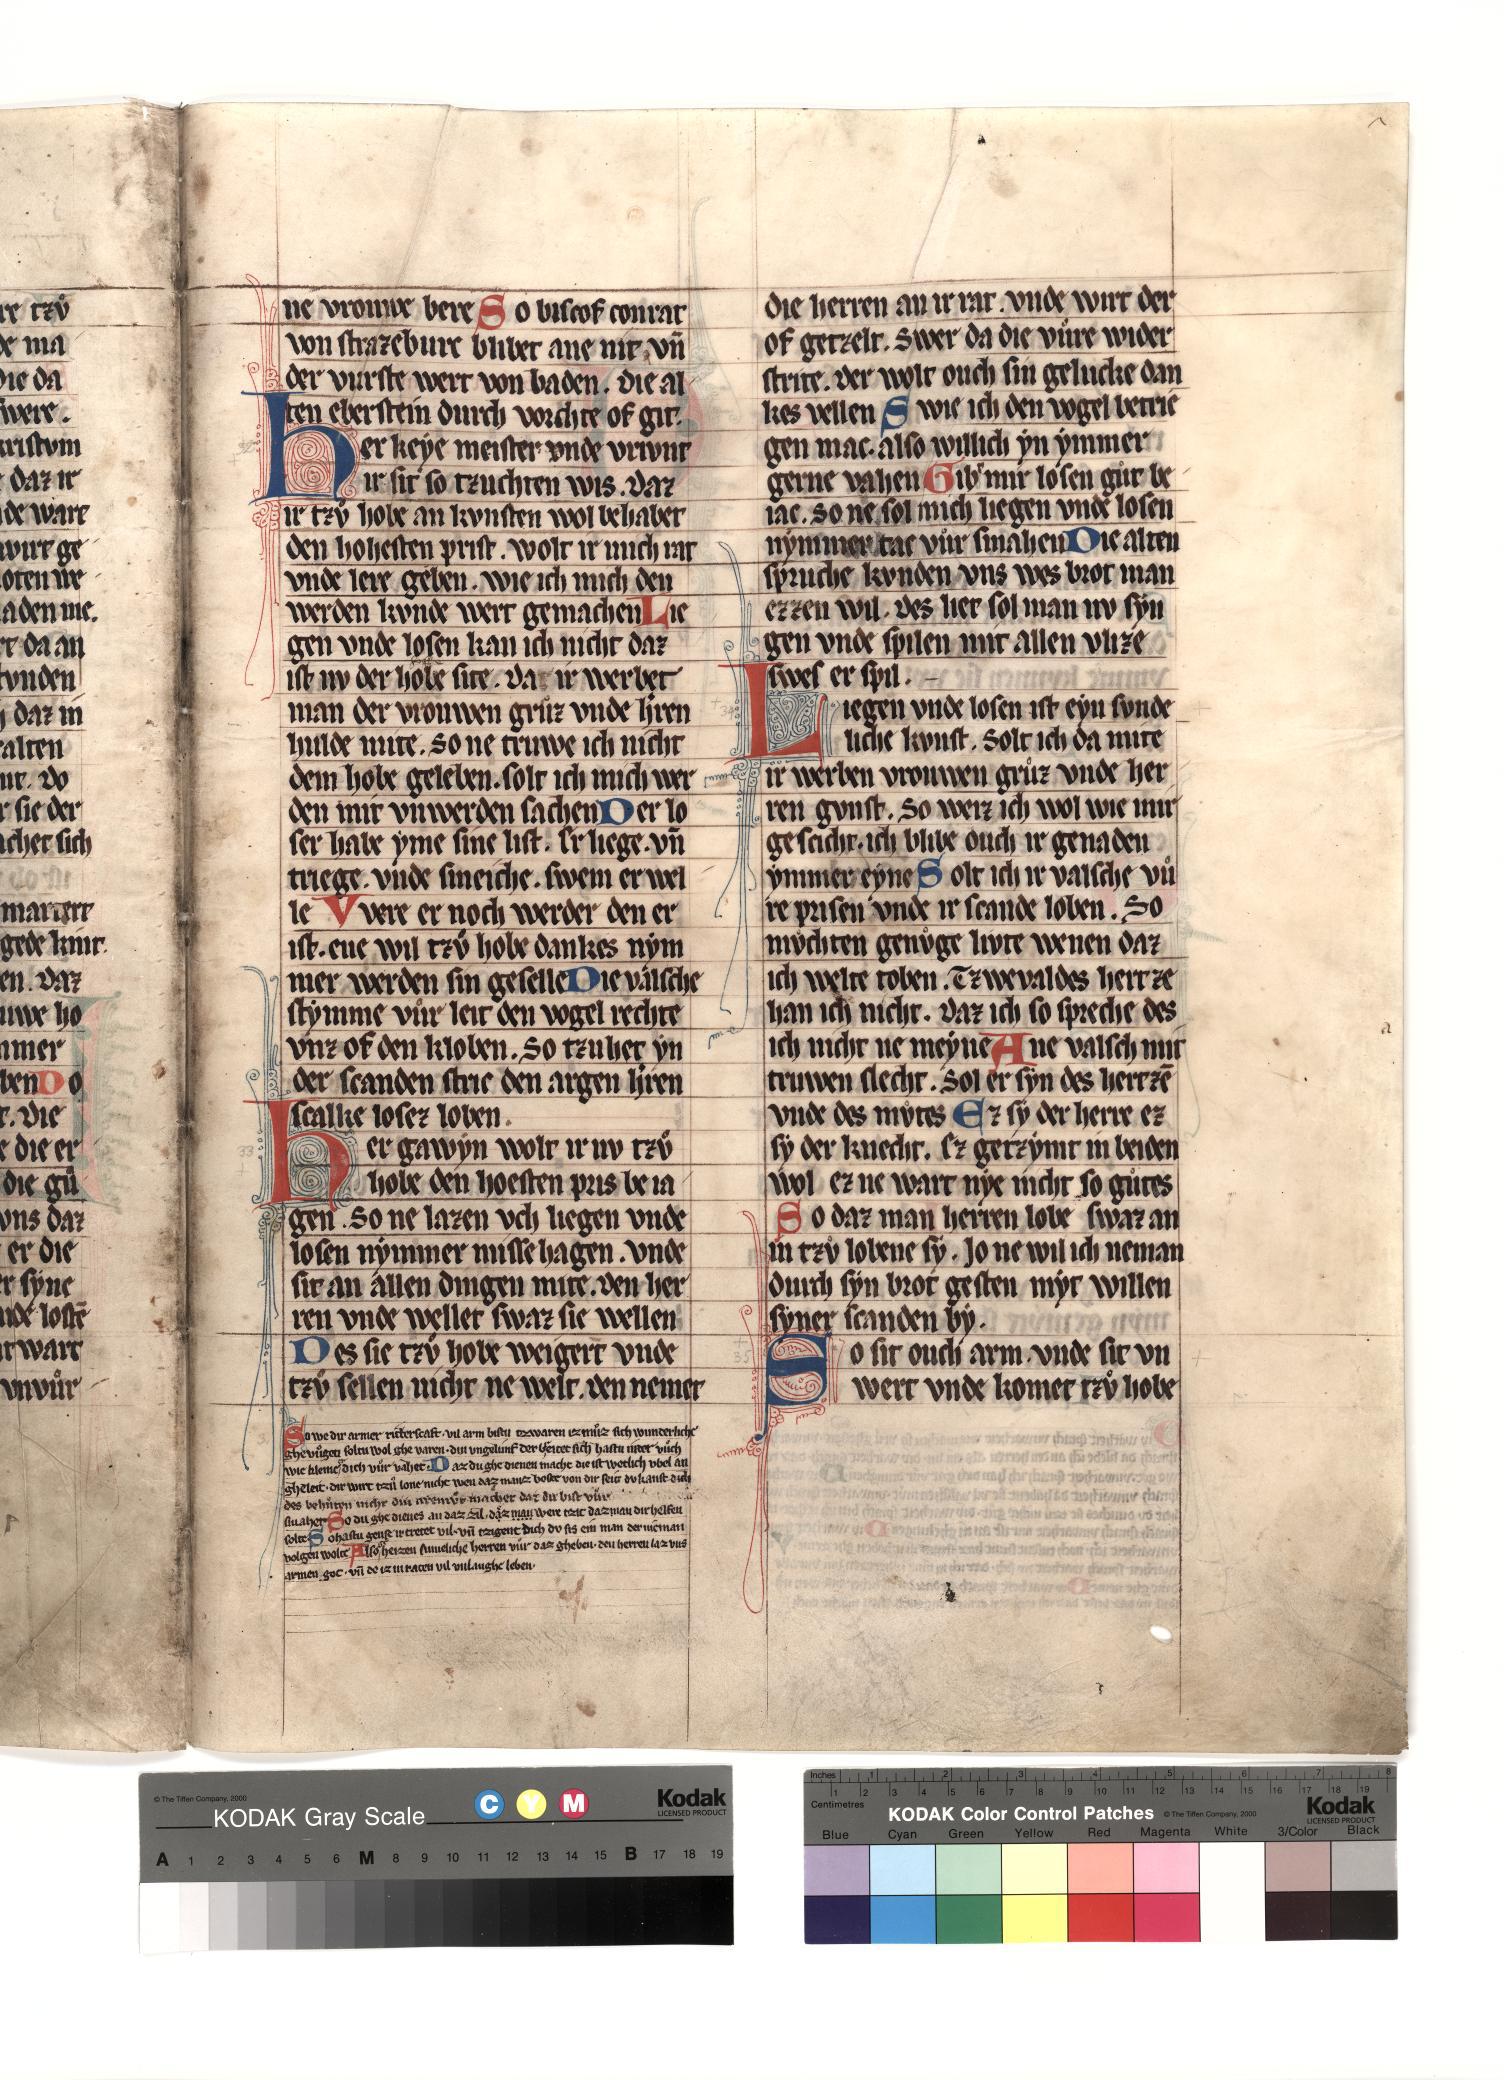 re tzů
de ma
Die da
swere.
kristvm
daz ir
de ware
wirt ge
oten we
aden me.
rt da an
kvnden
daz in
alten
nt. Do
r sie der
achet sich
martert
gede kint.
en. Daz
uwe ho
mmer
ben Do
r. Die
e die er
die gů
vns daz
er die
er sÿne
nde lostē
nt wart
vnvůr
ne vrouwe bere So biscof conrat
von strazeburc blibet ane nit. vn̄
der vurste wert von baden. Die al
ten eberstein durch vorchte of git.
Her keÿe meister vnde vrivnt
ir sit so tzuchten wis. Daz
ir tzů hobe an kvnsten wol behabet
den hohesten prist. wolt ir mich rat
vnde lere geben. wie ich mich den
werden kvnde wert gemachen Lie
gen vnde losen kan ich nicht daz
ist nv der hobe site. Da ir werbet
man der vrouwen grůz vnde h̓ren
hulde mite. So ne truwe ich nicht
dem hobe geleben. solt ich mich wer
den mit vnwerden sachen Der lo
ser habe ÿme sine list. Er liege. vn̄
triege. vnde smeiche. swem er wel
le Vvere er noch werder den er
ist. ene wil tzů hobe dankes nÿm
mer werden sin geselle Die valsche
stÿmme vůr leit den vogel rechte
vnz of den kloben. So tzuhet ÿn
der scanden stric den argen h̓ren
scalke losez loben.
Her gawÿn wolt ir nv tzů
hobe den hoesten pris be ia
gen. So ne lazen vch liegen vnde
losen nÿmmer misse hagen. vnde
sit an allen dingen mite. Den her
ren vnde wellet swaz sie wellen
Des sie tzů hobe weigert vnde
tzů sellen nicht ne welt. Den nemet
So we dir armer ritterscaft. vil arm bistu tzwaren iz můz sich wunderliche
ghevůgen soltu wol ghe varen. din vngelimf der breitet sich hastu niner vůch
wie kleine dich vůr vahet. Daz du ghe dienen macht die ist wetlich vbel an
gheleit. dir wirt tzů lone nicht wen daz manz boste von dir seit dv kanst dich
des behůten nicht din vremvůr machet daz dir bist vůr
smahet So du ghe dienes an daz zil. daz man were tzit daz man dir helfen
solte So hastu gense ir tretet vil. vn̄ tzigent dich dv sis ein man der nieman
volgen wolte Also hetzen sumeliche herren vůr daz gheben. den herren laz vns
armen got. vn̄ de iz in raten vil vnlanghe leben.
die herren an ir rat. vnde wirt der
of getzelt. Swer da die vůre wider
strite. der wolt ouch sin gelucke dan
kes vellen Swie ich den vogel betrie
gen mac. also willich ÿn ÿmmer
gerne vahen Gib mir losen gůt be
iac. so ne sol mich liegen vnde losen
nÿmmer tac vůr smahen Die alten
spruche kvnden vns wes brot man
ezzen wil. des liet sol man nv sÿn
gen vnde spilen mit allen vlize
swes er spil.
Liegen vnde losen ist eÿn svnde
liche kvnst. Solt ich da mite
ir werben vrouwen grůz vnde her
ren gvnst. So weiz ich wol wie mir
gescicht. ich blibe ouch ir genaden
ÿmmer eÿne Solt ich ir valsche vů
re prisen vnde ir scande loben. So
mvchten genůge livte wenen daz
ich welte toben. Tzwevaldes hertze
han ich nicht. Daz ich so spreche des
ich nicht ne meÿne Ane valsch mit
truwen slecht. Sol er sÿn des hertzē
vnde des můtes Ez sÿ der herre ez
sÿ der knecht. Ez getzÿmt in beiden
wol ez ne wart nÿe nicht so gůtes
So daz man herren lobe swaz an
in tzů lobene sÿ. Jo ne wil ich neman
durch sÿn brot gesten mÿt willen
sÿner scanden bÿ.
So sit ouch arm. vnde sit vn
wert vnde komet tzů hobe
© The Tiffen Company, 2000
KODAK Gray Scale
C Y M
Kodak
LICENSED PRODUCT
A 1 2 3 4 5 6 M 8 9 10 11 12 13 14 15 B 17 18 19
Inches 1 2 3 4 5 6 7 8
Centimetres 1 2 3 4 5 6 7 8 9 10 11 12 13 14 15 16 17 18 19
KODAK Color Control Patches © The Tiffen Company, 2000
Kodak
LICENSED PRODUCT
Blue Cyan Green Yellow Red Magenta White 3/Color Black